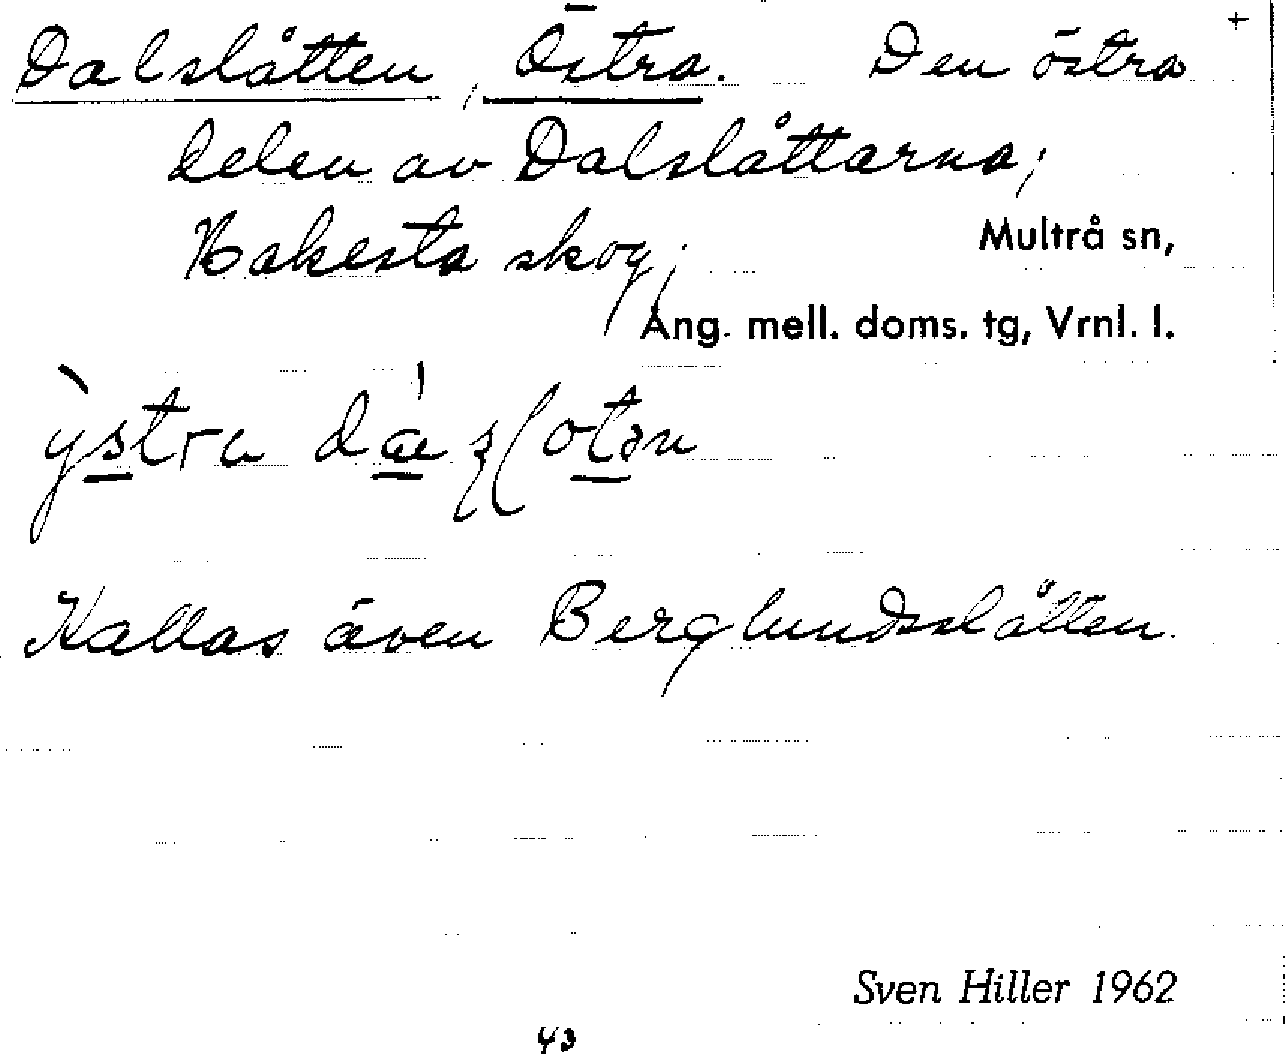 Dalslåtten, Östra. Den östra +
delen av Dalslåttarna;
Hakesta skog;
Multrå sn,
Ång. mell. doms. tg, Vrnl. l.
Kallas även Berglundsslåtten.
Sven Hiller 1962
43